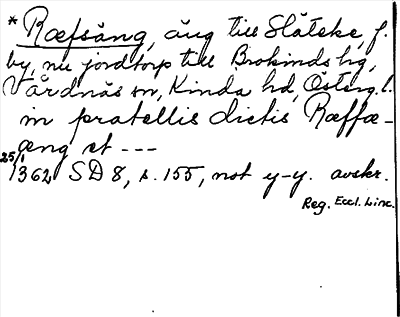 * Ræfsäng, äng till Slåteke, f.
by, nu jordtorp till Brokinds hg,
Vårdnäs sn, Kinda hd, Österg. l.
in pratellis dictis Ræffæ-
æng et ---
25/1 1362 SD 8, s. 155, not y-y. avskr.
Reg. Eccl. Linc.